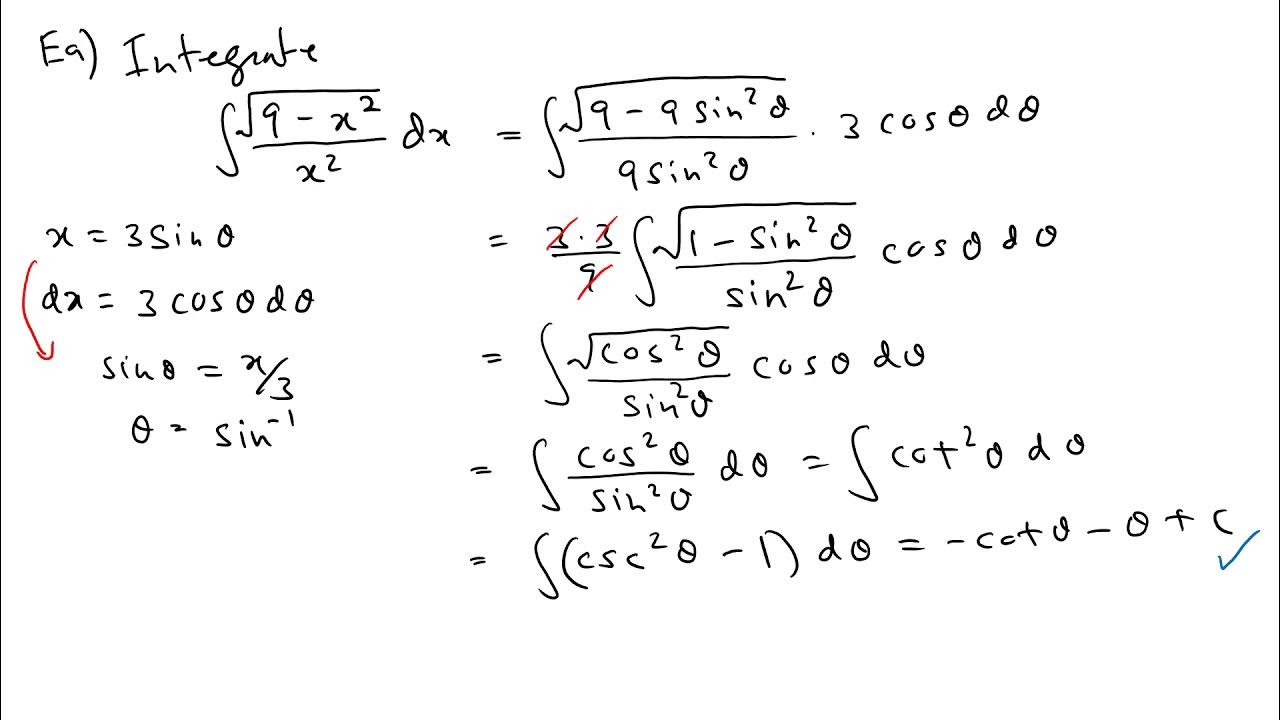 Ea) Integrate
∫ √(9 − x²) / x² dx = ∫ √(9 − 9 sin²θ) / 9 sin²θ · 3 cos θ dθ
x = 3 sin θ
dx = 3 cos θ dθ
sin θ = x/3
θ = sin⁻¹
= 3·3 / 9 ∫ √(1 − sin²θ) / sin²θ cos θ dθ
= ∫ √(cos²θ) / sin²θ cos θ dθ
= ∫ cos²θ / sin²θ dθ = ∫ cot²θ dθ
= ∫ (csc²θ − 1) dθ = −cot θ − θ + c